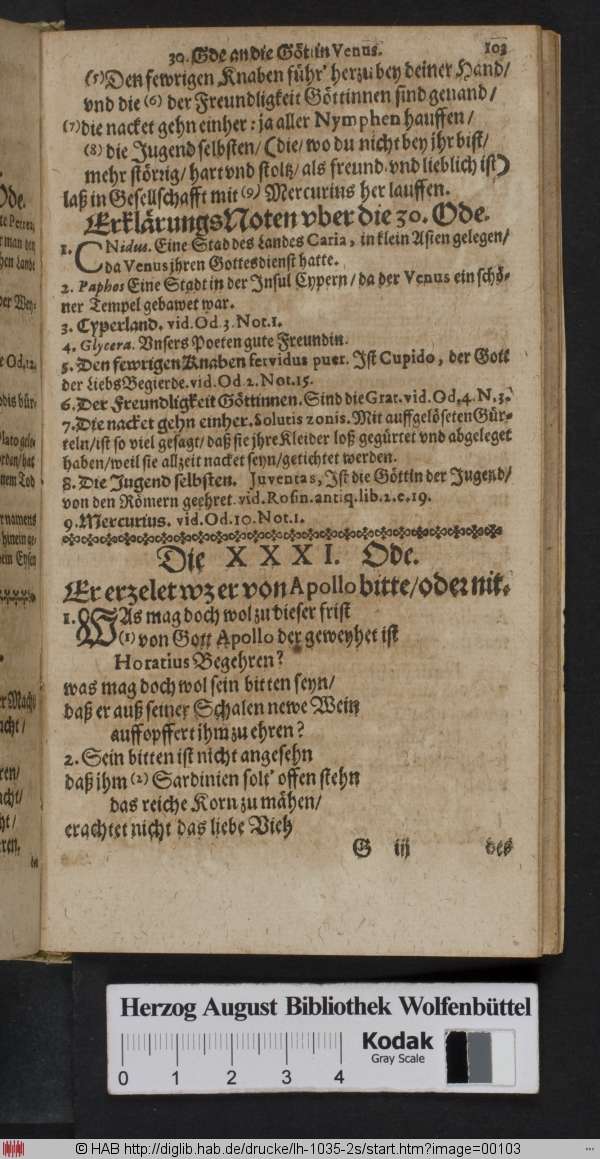 30. Ode an die Göttin Venus. 103
(5) Den fewrigen Knaben führ' herzu bey deiner Hand/
vnd die (6) der Freundligkeit Göttinnen sind genand/
(7) die nacket gehn einher: ja aller Nymphen hauffen/
(8) die Jugend selbsten/ (die/ wo du nicht bey jhr bist/
mehr störrig/ hart vnd stoltz/ als freund- vnd lieblich ist)
laß in Gesellschafft mit (9) Mercurius her lauffen.
Erklärungs Noten vber die 30. Ode.
1. CNidus. Eine Stad des Landes Caria, in klein Asien gelegen/
da Venus jhren Gottesdienst hatte.
2. Paphos Eine Stadt in der Insul Cypern/ da der Venus ein schö-
ner Tempel gebawet war.
3. Cyperland. vid. Od. 3. Not. 1.
4. Glycera. Vnsers Poeten gute Freundin.
5. Den fewrigen Knaben fervidus puer. Ist Cupido, der Gott
der Liebs Begierde. vid. Od 2. Not. 15.
6. Der Freundligkeit Göttinnen. Sind die Grat. vid. Od. 4. N. 3.
7. Die nacket gehn einher. Solutis zonis. Mit auffgelöseten Gür-
teln/ ist so viel gesagt/ daß sie jhre Kleider loß gegürtet vnd abgeleget
haben/ weil sie allzeit nacket seyn/ getichtet werden.
8. Die Jugend selbsten. Juventas, Ist die Göttin der Jugend/
von den Römern geehret. vid. Rosin. antiq. lib. 2. c. 19.
9. Mercurius. vid. Od. 10. Not. 1.
Die XXXI. Ode.
Er erzelet wz er von Apollo bitte/ oder nit.
1. WAs mag doch wol zu dieser frist
(1) von Gott Apollo der geweyhet ist
Horatius Begehren?
was mag doch wol sein bitten seyn/
daß er auß seiner Schalen newe Wein
auffopffert ihm zu ehren?
2. Sein bitten ist nicht angesehn
daß ihm (2) Sardinien solt' offen stehn
das reiche Korn zu mähen/
erachtet nicht das liebe Vieh
G iij des
Herzog August Bibliothek Wolfenbüttel
Kodak
Gray Scale
0 1 2 3 4
© HAB http://diglib.hab.de/drucke/lh-1035-2s/start.htm?image=00103